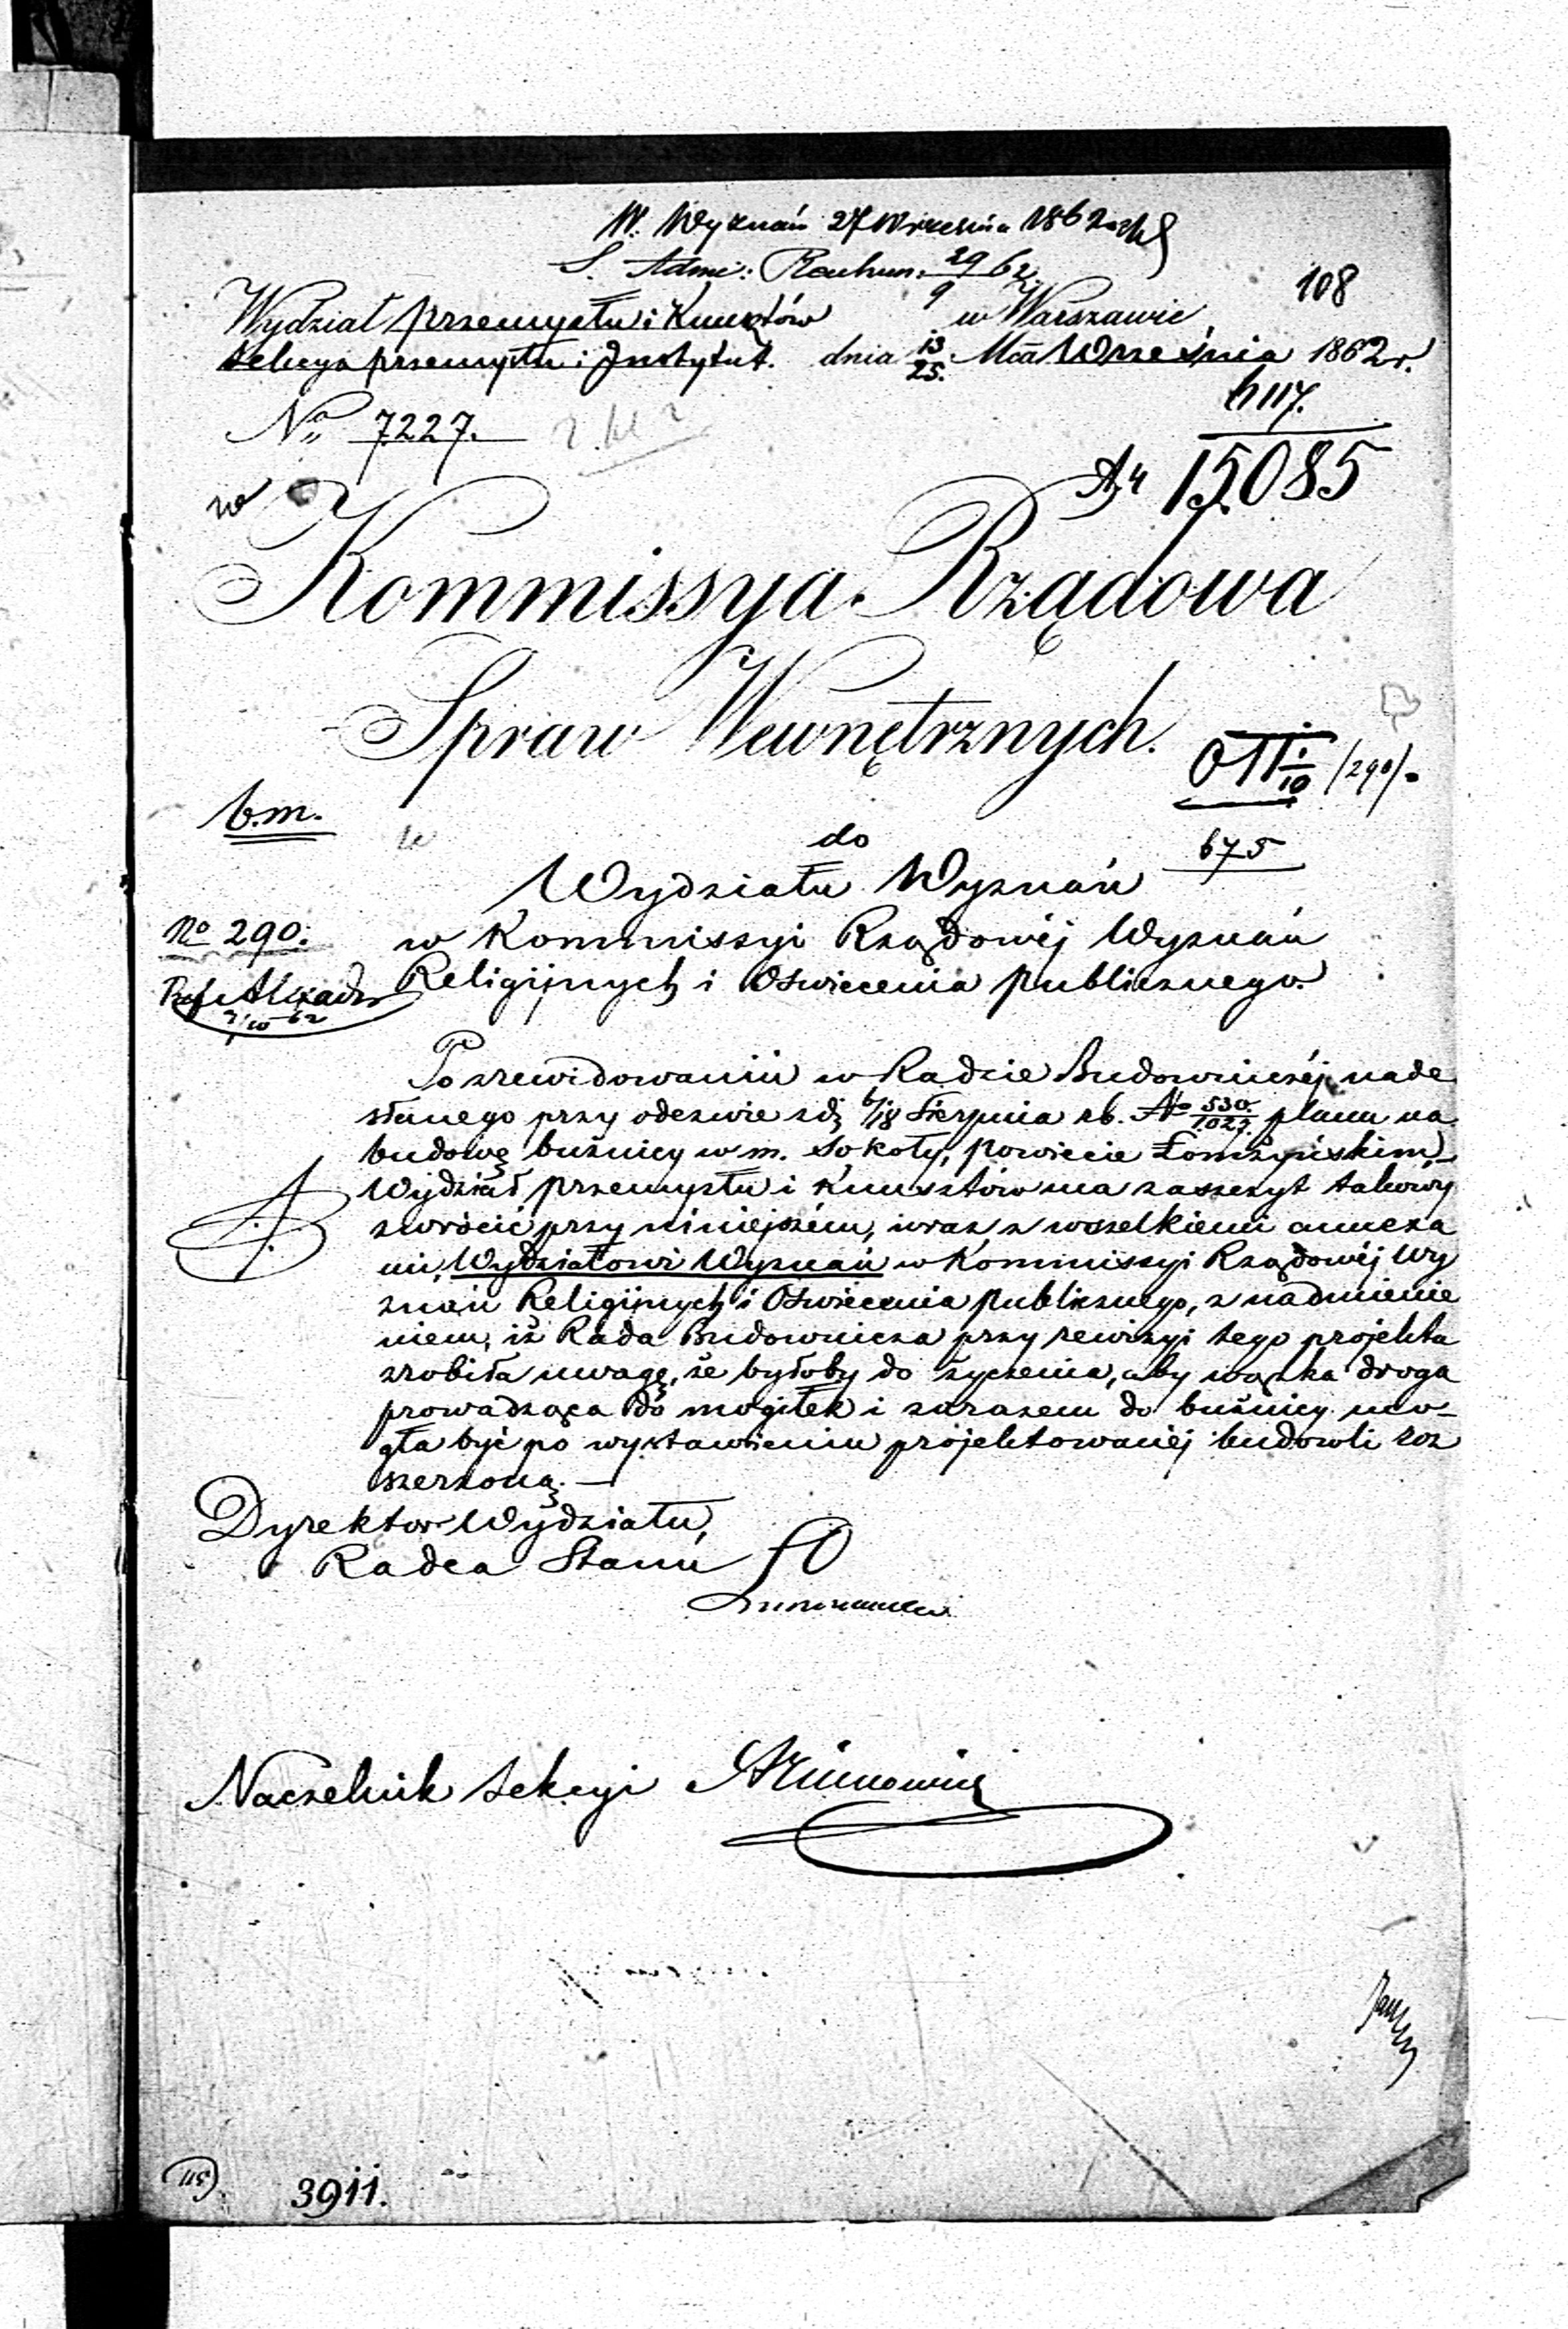 W. Wyznań 27 Września 1862
S. Admi: Rachun. 29/9 62
108
Wydział przemysłu i Kunsztów w Warszawie
Sekcya przemysłu i Instytut. dnia 13/25. Mca Września 1862 r.
6117.
No 7227.
15085
Kommissya Rządowa
Spraw Wewnętrznych.
/290/
b.m.
do
675
Wydziału Wyznań
No 290.
w Kommissyi Rządowéj Wyznań
Religijnych i Oświecenia publicznego.
Po zrewidowaniu w Radzie Budowniczéj nade
słanego przy odezwie z d. 6/18 Sierpnia rb. No 530/1027. planu na
budowę bużnicy w m. Sokoły, powiecie Łomżyńskim,
Wydział przemysłu i Kunsztów ma zaszczyt takowy
zwrócić przy niniejszém, wraz z wszelkiemi annexa
mi, Wydziałowi Wyznań w Kommissyi Rządowéj Wy
znań Religijnych i Oświecenia publicznego, z nadmienie
niem, iż Rada Budownicza przy rewizyi tego projektu
zrobiła uwagę, że byłoby do życzenia, aby wązka droga
prowadząca do mogiłek i zarazem do bużnicy mo-
gła być po wystawieniu projektowanéj budowli roz
szerzoną. —
Dyrektor Wydziału,
Radca Stanu
Naczelnik Sekcyi
115
3911.